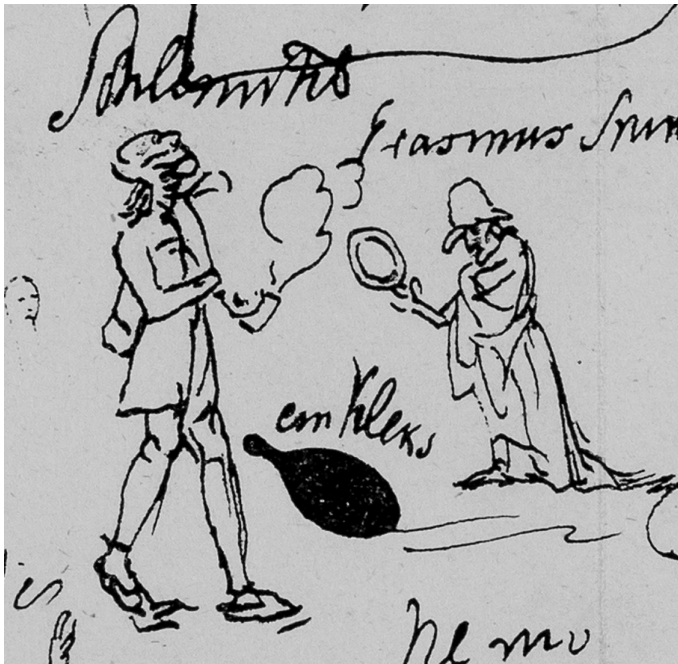 Schlemihl
Erasmus
ein Kleks
nemo